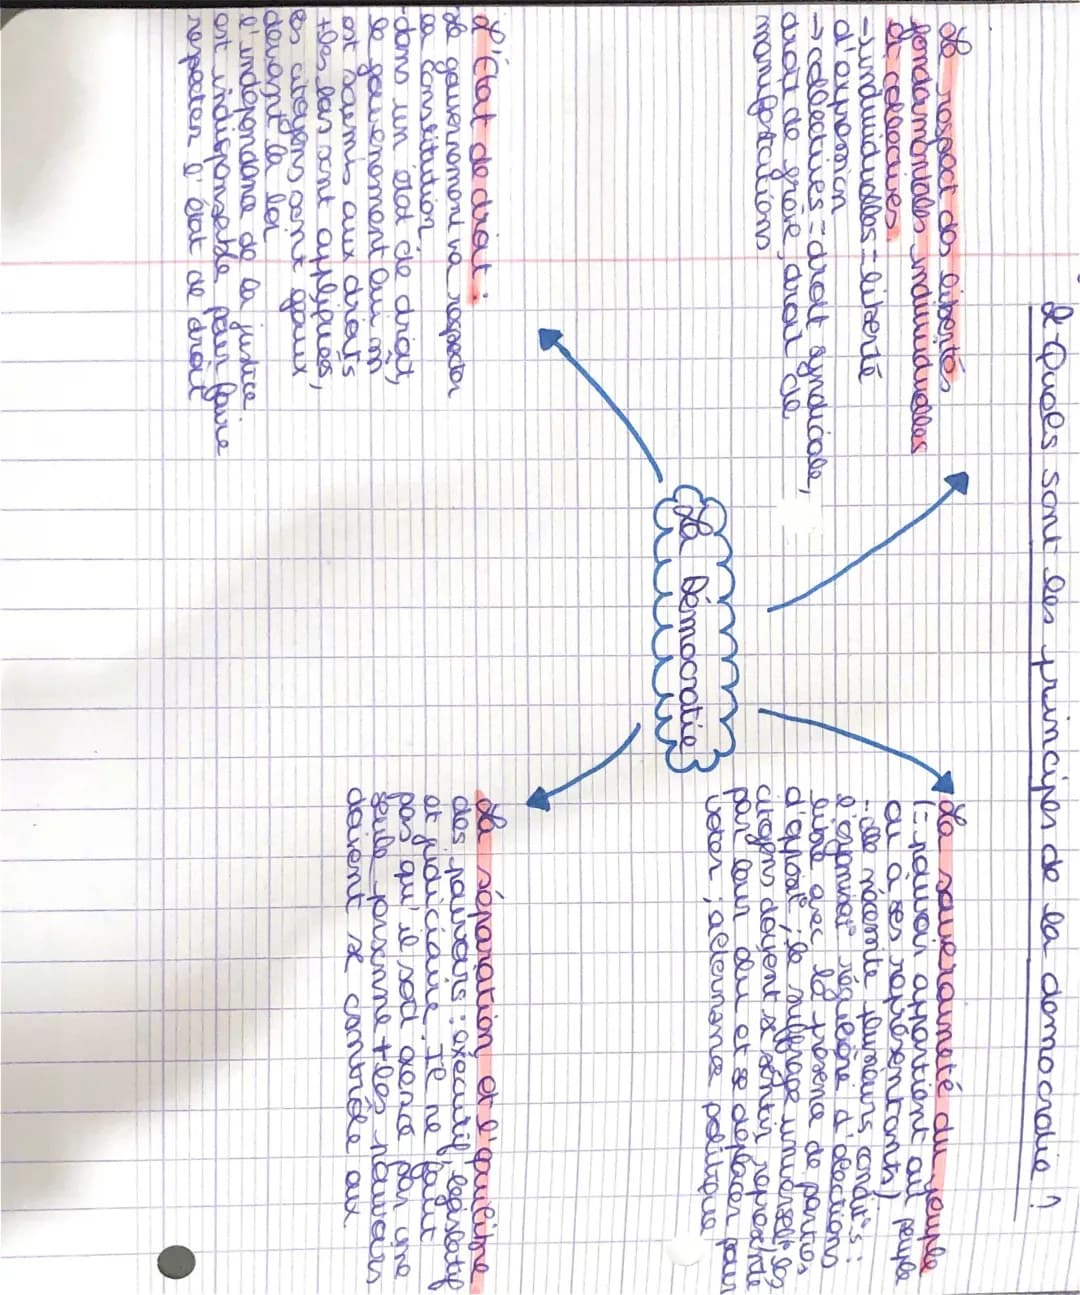 2-Quels sont les principes de la démocratie ?
Le respect des libertés
fondamentales individuelles
et collectives.
→ individuelles = liberté
d'expression
→ collectives = droit syndicale,
droit de grève, droit de
manifestations
La souveraineté du peuple
(= pouvoir appartient au peuple
ou à ses représentants)
- elle nécessite plusieurs condit°s :
l'organisat° régulière d'élections
libre avec la présence de parties
d'opposit°, le suffrage universel, les
citoyens doivent se sentir représentés
par leur élu et se déplacer pour
voter, alternance politique
La Démocratie
L'état de droit :
Le gouvernement va respecter
la constitution
dans un état de droit,
le gouvernement lui m̂
est soumis aux droits
+ les lois sont appliquées,
les citoyens sont égaux
devant la loi
l'indépendance de la justice
est indispensable pour faire
respecter l'état de droit
La séparation et l'équilibre
des pouvoirs : exécutif, législatif
et judiciaire. Il ne faut
pas qu'il soit exercé par une
seule personne + les pouvoirs
doivent se contrôle aux